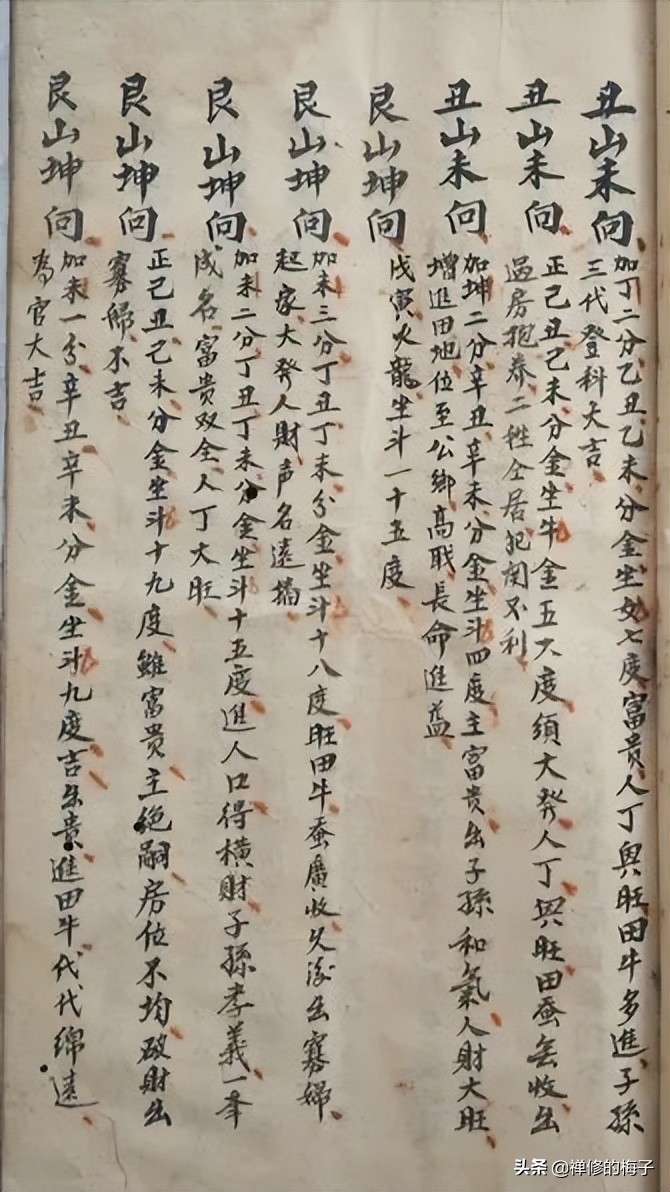 丑山未向
加丁二分乙丑乙未分金坐女七度富貴人丁興旺田牛多進子孫
三代登科大吉
丑山未向
正己丑己未分金坐牛金五六度須大發人丁興旺田蚕全收出
過房抱养二姓仝居犯関不利
丑山未向
加坤二分辛丑辛未分金坐斗四度主富貴出子孫和氣人財大旺
增進田地位至公卿高戢長命進益
艮山坤向
戊寅火龍坐斗一十五度
艮山坤向
加未三分丁丑丁未分金坐斗十八度旺田牛蚕廣收久后出寡婦
起家大発人財声名遠播
艮山坤向
加未二分丁丑丁未分金坐斗十五度進人口得橫財子孫孝義一羍
成名富貴双全人丁大旺
艮山坤向
正己丑己未分金坐斗十九度雖富貴主絶嗣房位不均破財出
寡婦不吉
艮山坤向
加未一分辛丑辛未分金坐斗九度吉出貴進田牛代代綿遠
為官大吉
头条 @禅修的梅子